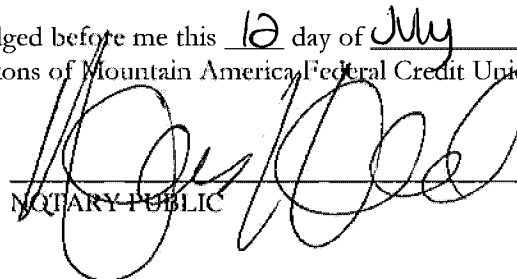 dged before me this 12 day of July
ons of Mountain America Federal Credit Unio
NOTARY PUBLIC